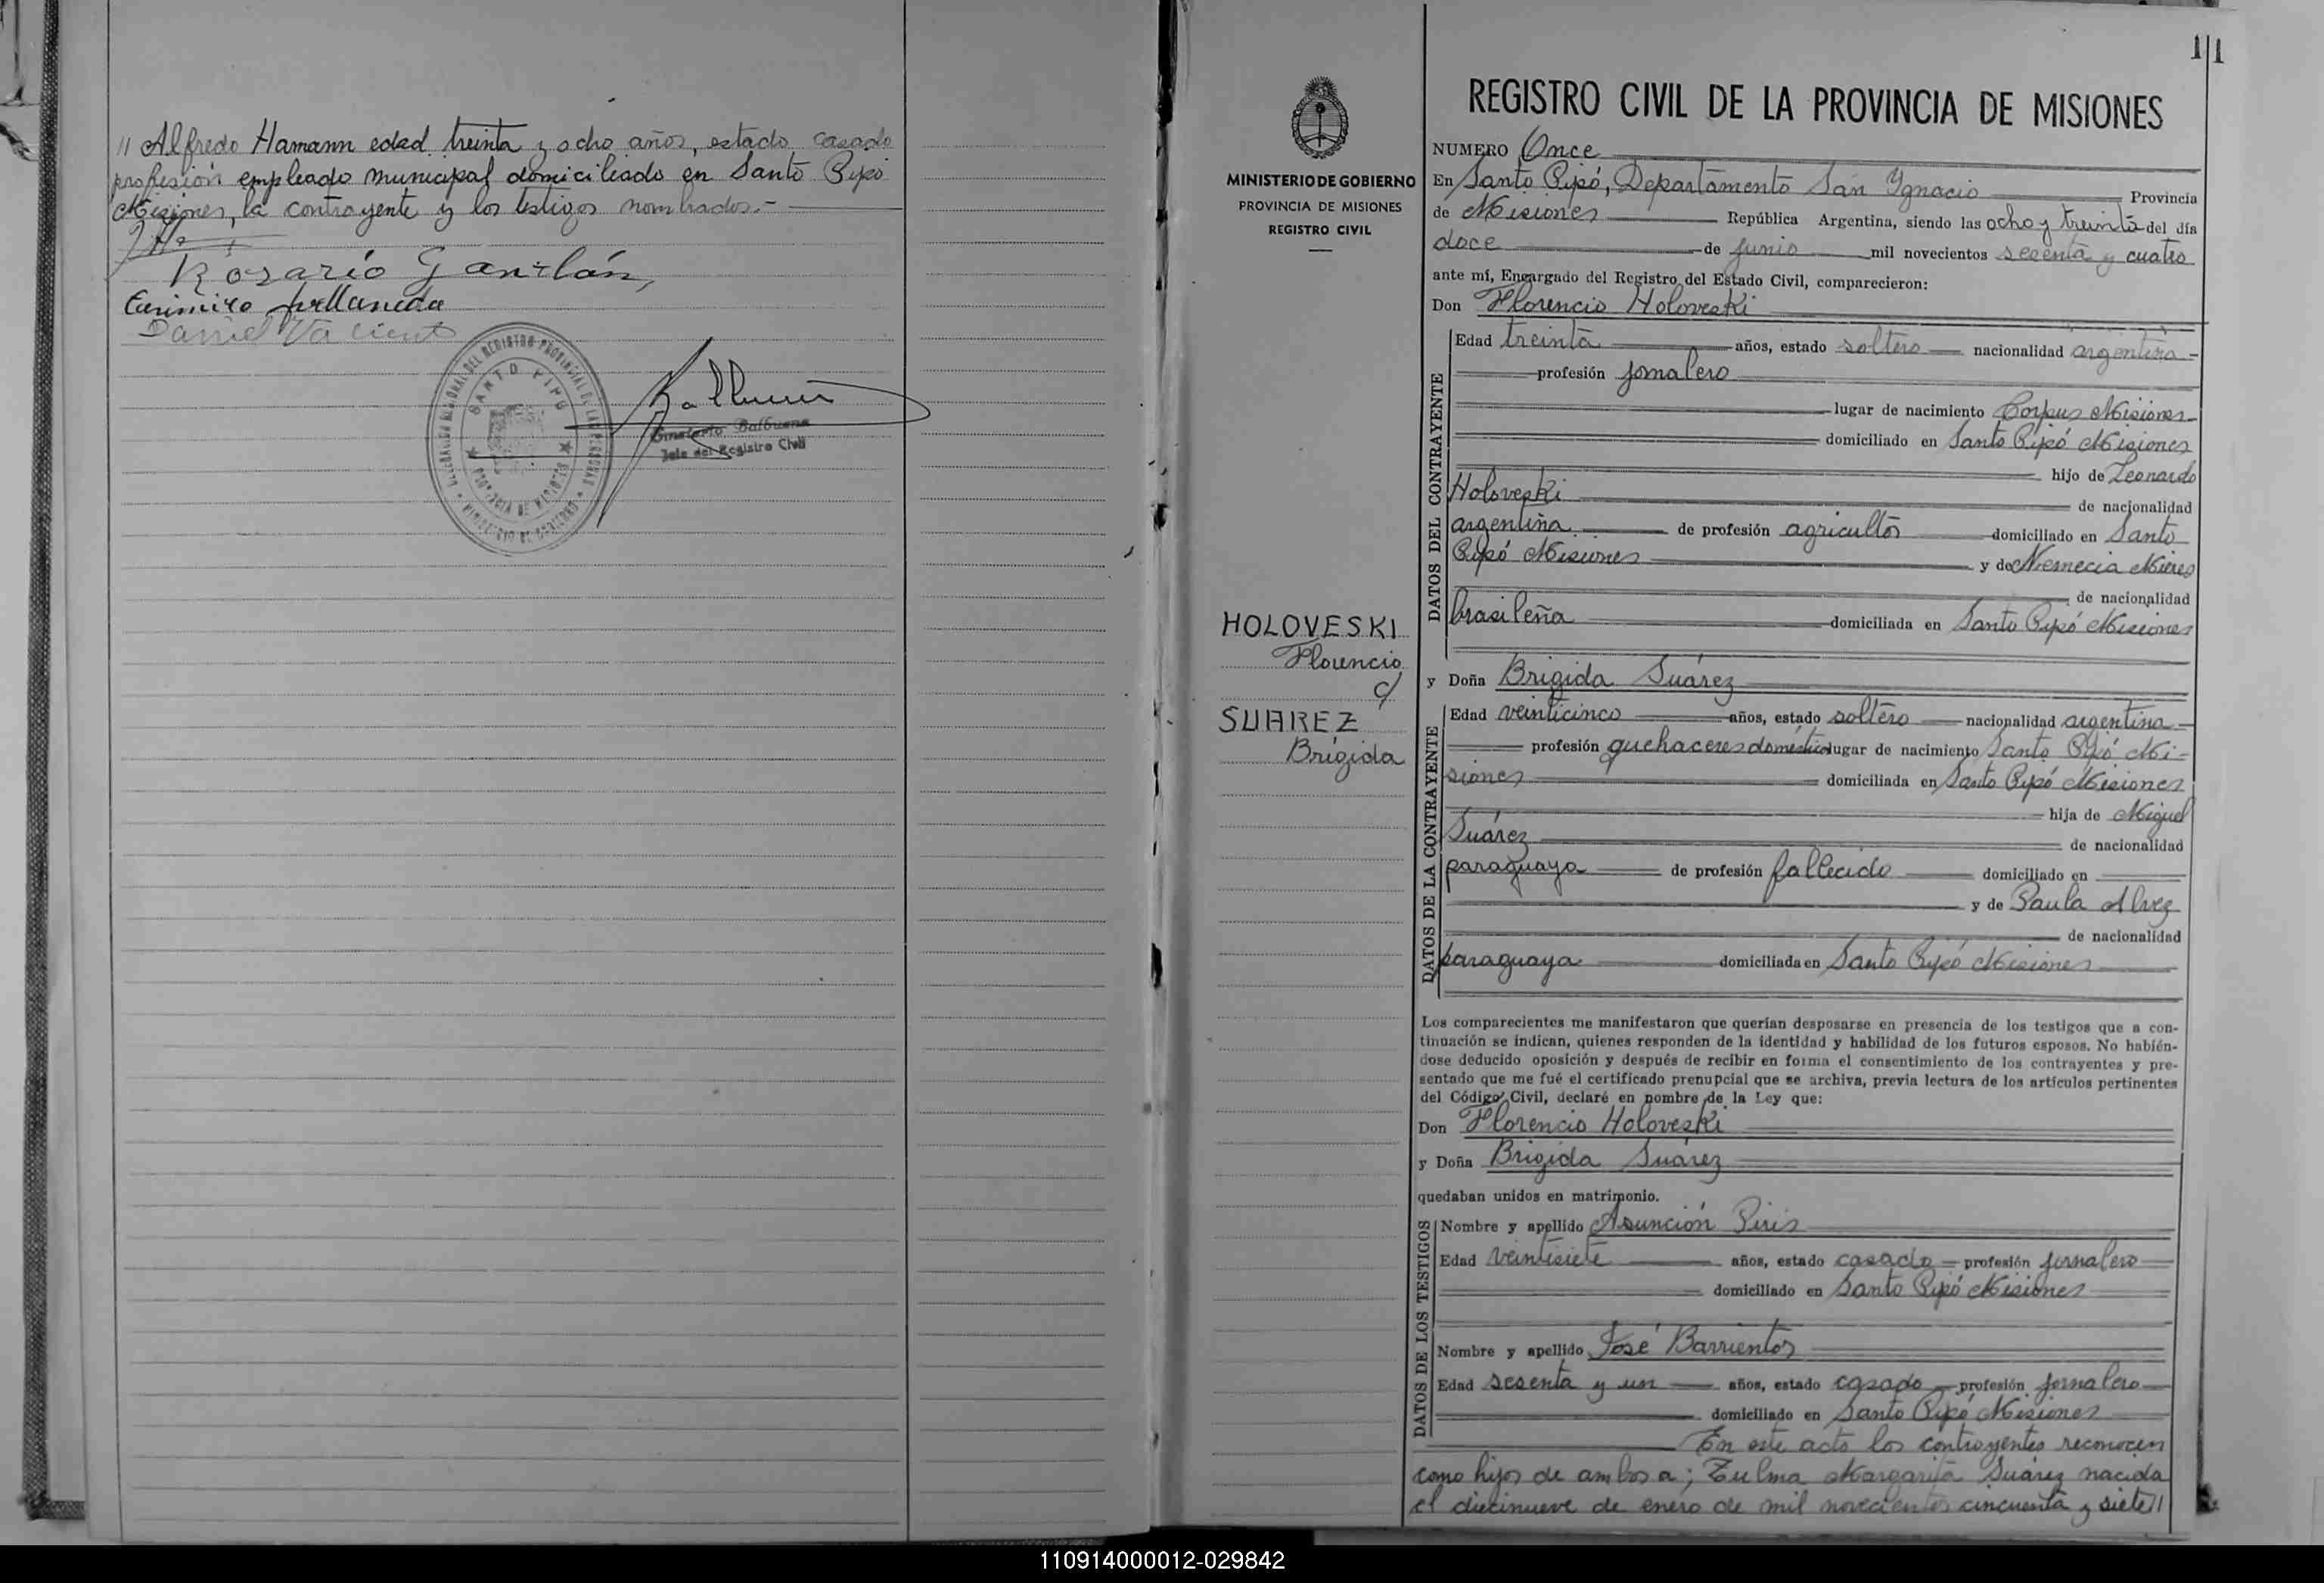 // Alfredo Hamann edad treinta y ocho años, estado casado
profesión empleado municipal domiciliado en Santo Pipó
Misiones, la contrayente y los testigos nombrados.-
Rosario Gavilán,
Casimiro Avellaneda
Daniel
DEL REGISTRO PROVINCIAL DE LAS PERSONAS
SANTO PIPÓ
PROVINCIA DE MISIONES
MINISTERIO DE GOBIERNO
Balbuena
Jefe del Registro Civil
11
MINISTERIO DE GOBIERNO
PROVINCIA DE MISIONES
REGISTRO CIVIL
HOLOVESKI
Florencio
c/
SUAREZ
Brígida
REGISTRO CIVIL DE LA PROVINCIA DE MISIONES
NUMERO Once
En Santo Pipó, Departamento San Ygnacio Provincia
de Misiones República Argentina, siendo las ocho y treinta del día
doce de junio mil novecientos sesenta y cuatro
ante mí, Encargado del Registro del Estado Civil, comparecieron:
Don Florencio Holoveski
DATOS DEL CONTRAYENTE
Edad treinta años, estado soltero nacionalidad argentina
profesión jornalero
lugar de nacimiento Corpus Misiones
domiciliado en Santo Pipó Misiones
hijo de Leonardo
Holoveski de nacionalidad
argentina de profesión agricultor domiciliado en Santo
Pipó Misiones y de Nemecia Mieres
de nacionalidad
brasileña domiciliada en Santo Pipó Misiones
y Doña Brigida Suárez
DATOS DE LA CONTRAYENTE
Edad veinticinco años, estado soltero nacionalidad argentina
profesión quehaceres domésticos lugar de nacimiento Santo Pipó Mi-
siones domiciliada en Santo Pipó Misiones
hija de Miguel
Suárez de nacionalidad
paraguaya de profesión fallecido domiciliado en
y de Paula Alvez
de nacionalidad
paraguaya domiciliada en Santo Pipó Misiones
Los comparecientes me manifestaron que querían desposarse en presencia de los testigos que a con-
tinuación se indican, quienes responden de la identidad y habilidad de los futuros esposos. No habién-
dose deducido oposición y después de recibir en forma el consentimiento de los contrayentes y pre-
sentado que me fué el certificado prenupcial que se archiva, previa lectura de los artículos pertinentes
del Código Civil, declaré en nombre de la Ley que:
Don Florencio Holoveski
y Doña Brigida Suárez
quedaban unidos en matrimonio.
DATOS DE LOS TESTIGOS
Nombre y apellido Asunción Piris
Edad veintisiete años, estado casado profesión jornalero
domiciliado en Santo Pipó Misiones
Nombre y apellido José Barrientos
Edad sesenta y un años, estado casado profesión jornalero
domiciliado en Santo Pipó Misiones
En este acto los contrayentes reconocen
como hijos de ambos a; Zulma Margarita Suárez nacida
el diecinueve de enero de mil novecientos cincuenta y siete//
110914000012-029842